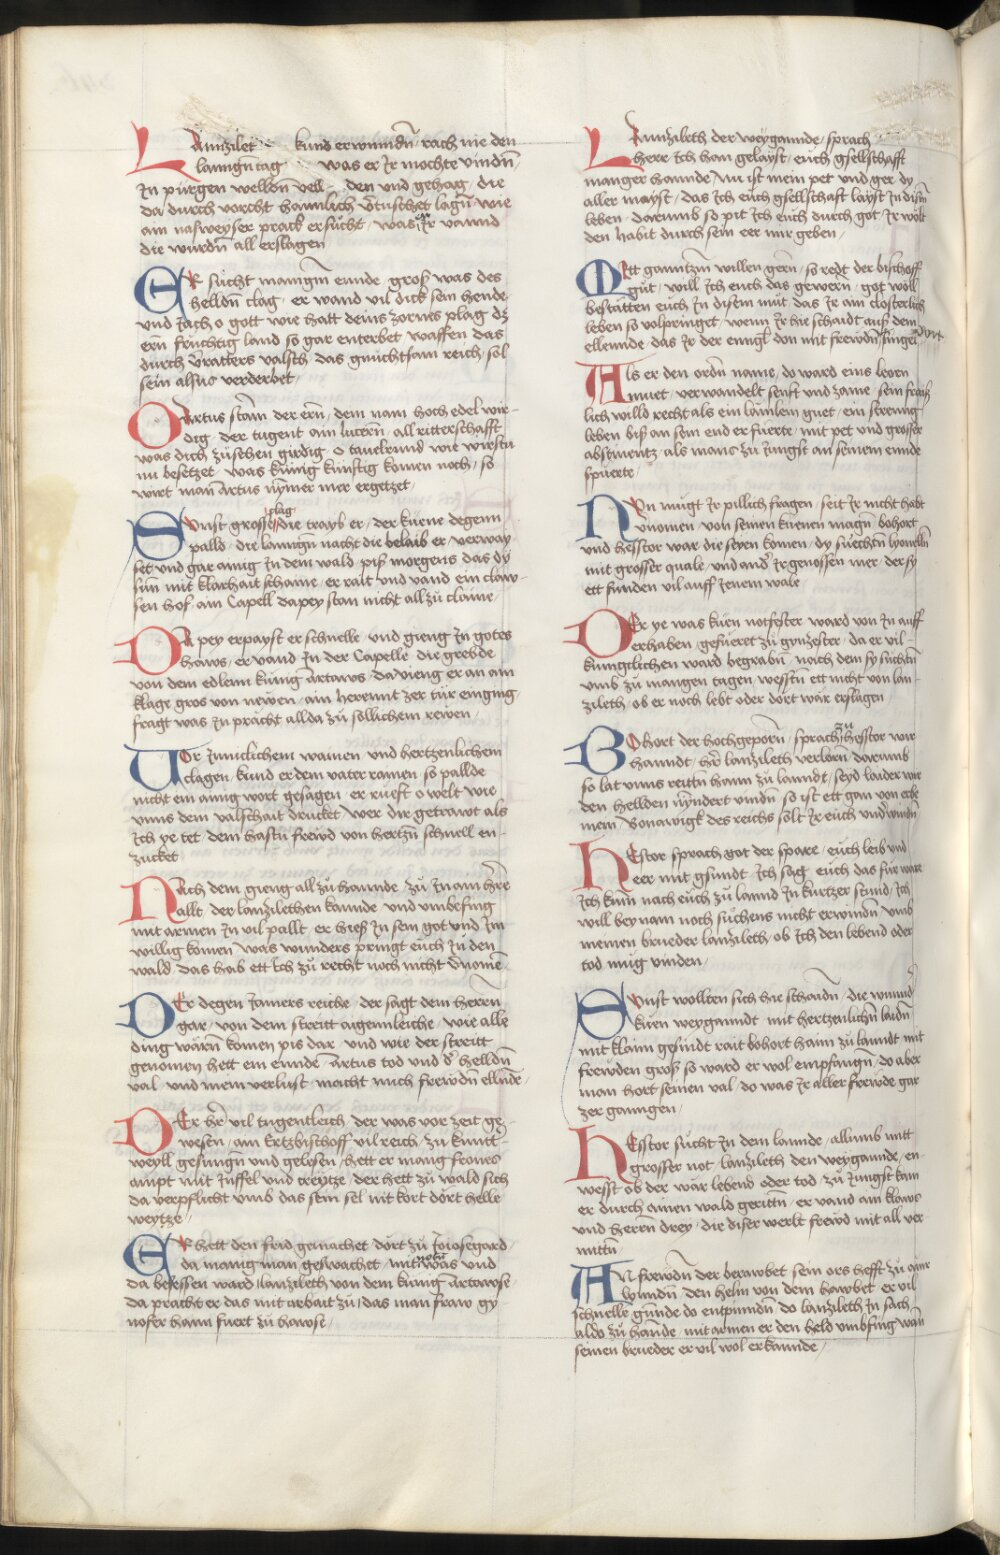 LAnnzilet kund erwinndn̄ rach nie den
lanngn tag was er Jr mochte vindn̄
Jn pürgen weldn̄ vell den und gehag / die
da durch vorcht haimlich v̄tuschet lagn̄ wie
ain nasweyser prack ersücht / was Jr vannd
die wurdn̄ all erslagen
ER sücht manigm ennde groß was des
helldn̄ clag / er wand vil dick sein hende
und sach o gott wie hatt deins zornes plag dz
ern früchtig land so gar enterbet waffen das
durch v̄ratters valsch das gnüchtsam reich / sol
sein alsus verderbet /
O Artus stam̄ der ern̄ / dem nam hoch edel wir-
dig der tugent ain lucern̄ / all ritterschafft
was dich züsehen girdig / o tavelrund wie wirstu
nu besetzet was künig künftig komen noch / so
wirt man̄ Artus nymer mer ergetzet /
SUnst grosse clag die trayb er / der küene degenn
palld / die lanngn̄ nacht die belaib er / verway-
set und gar ainig Jn dem wald / piß morgens das dy
sun̄ mit klarhait schaine / er rait und vand ein claw-
sen hof ain Capell dapey stan nicht all zü claine /
DA pey erpayst er schnelle / und gieng Jn gotes
haws / er vand Jn der Capelle die grebde
von dem edlenn künig Artaws / da vieng er an ain
klage gros von newen / ain heremit zer tür einging
fragt was Jn pracht allda zü sollichem rewen /
VOr Jnniclichem wainen und hertzenlichem
clagen / kund er dem vater rainen / so pallde
nicht ein ainig wort gesagen / er rüefft o welt wie
unns dem valschait drucket / wer dir getrawt als
Jch ye tet dem hastu frewd von hertzn̄ schnell en-
zucket
NAch dem gieng all zü hannde zü Jm ain herre
allt der lanzilethen kannde und umbefing
mit armen Jn vil pallt / er hieß Jn sein got und Jm
willig komen / was wunders pringt euch Jn den
wald das hab ett Jch zü recht noch nicht v̄nomen̄
DEr degen Jamers reiche / der sagt dem herrn̄
gar / von dem streitt aigennleiche / wie alle
ding wärn̄ komen pis dar und wie der streitt
genomen hett ein ennde Artus tod und d' helldn̄
val und mein verlust macht mich frewdn̄ ellende
DEr herr vil tugentleich / der was vor zeit ge-
wesen̄ ain Ertzbischoff vil reich / zü kunit-
weyll gesungn̄ und gelesen / hett er mang frones
ampt mit Jnffel und creytze / der hett zü wald sich
da verpflicht umb das sein sel nit kort dört helle
weytze /
ER hett den frid gemachet dört zü Joiosegard /
da manig man geswachet / mit not was und
da besessen ward / lanzileth von dem künig Artawse
da pracht er das mit arbait zü / das man fraw gy-
nofer hann fuert zü hawse /
LAnnzileth der weygannde / sprach
herre Jch han gelayst / euch gsellschafft
manger hannde Nu ist mein pet und ger dy
aller mayst / das Jch euch gsellschafft layst Jn disem
leben / darumb so pit Jch euch durch got Jr wölt
den habit durch sein eer mir geben /
MItt ganntzm̄ willen gern̄ / so redt der bischoff
güt / will Jch euch das gewern̄ / got woll
bestätten euch Jn disem müt das Jr am closterlich
leben so volpringet / wenn Jr hie schaidt auß dem
ellennde / das Jr der enngl don mit frewdn̄ singet dort
Als er den ordn̄ name / do ward eins leorn
muet / verwandelt senft und zame / sein fraiß
lich willd recht als ein lämlein guet / ein strenng
leben biß an sein end er fuerte / mit pet und grosser
abstinentz / als mans zü Jungst an seinem ennde
spuerte /
NUn mügt Jr pillich fragen / seit Jr nicht habt
v̄nomen / von seinen küenen magn̄ / bohort
und hesstor war die seyen komen / dy suechtn̄ lyonelln̄
mit grosser quale / und and' Jr genossen mer / der sy
ett funden vil auff Jenem wale
DEr ye was küen notfester ward von Jn auff
erhaben / gefueret zü gynzester / da er vil
künigclichen ward begrabn̄ / noch dem sy suechtn̄
umb zü mangen tagen / wesstn̄ ett nicht von lan-
zileth / ob er noch lebt oder dort wär erslagen
BOhort der hochgeporn̄ / sprach zu hesstor wir
hanndt / hr̄n lanzileth verlorn̄ / darumb
so lat unns reittn̄ hann zü lanndt / seyd laider wir
den hellden nyndert vindn̄ so ist ett gan von erbe
mein / Bonawigk des reichs solt Jr euch und'winden
HEstor sprach got der spare / euch leib und
eer mit gsundt / Jch sag euch das für ware
Jch kum nach euch zü lannd Jn kurtzer stund / Jch
will bey nam noch süchens nicht erwindn̄ / umb
meinen brueder lanzileth / ob Jch den lebend oder
tod müg vinden /
SUnst wollten sich hie schaidn̄ / die wunnd'
küen weyganndt mit hertzenlichn̄ laidn̄
mit klain gesindt rait bohort hann zü lanndt mit
frewden groß / so ward er wol empfangn̄ / do aber
man hort seinen val / do was Jr aller frewde gar
zer ganngen /
HEsstor sücht Jn dem lannde / allumb mitt
grosser not / lanzileth den weygannde / en-
wesst ob der wär lebend oder tod / zü Jungst kam
er durch ainen wald gerittn̄ / er vand ain klaws
und herrn̄ drey / die diser welt frewd mit all ver-
mittn̄
AN frewdn̄ der berawbet sein ors hefft zü ainer
lynndn̄ den helm von dem hawbet er vil
schnelle gunde do entpinndn̄ / do lanzileth Jn sach
aldo zü hannde / mit armen er den held umbfing wan̄
seinen brueder er vil wol erkannde /